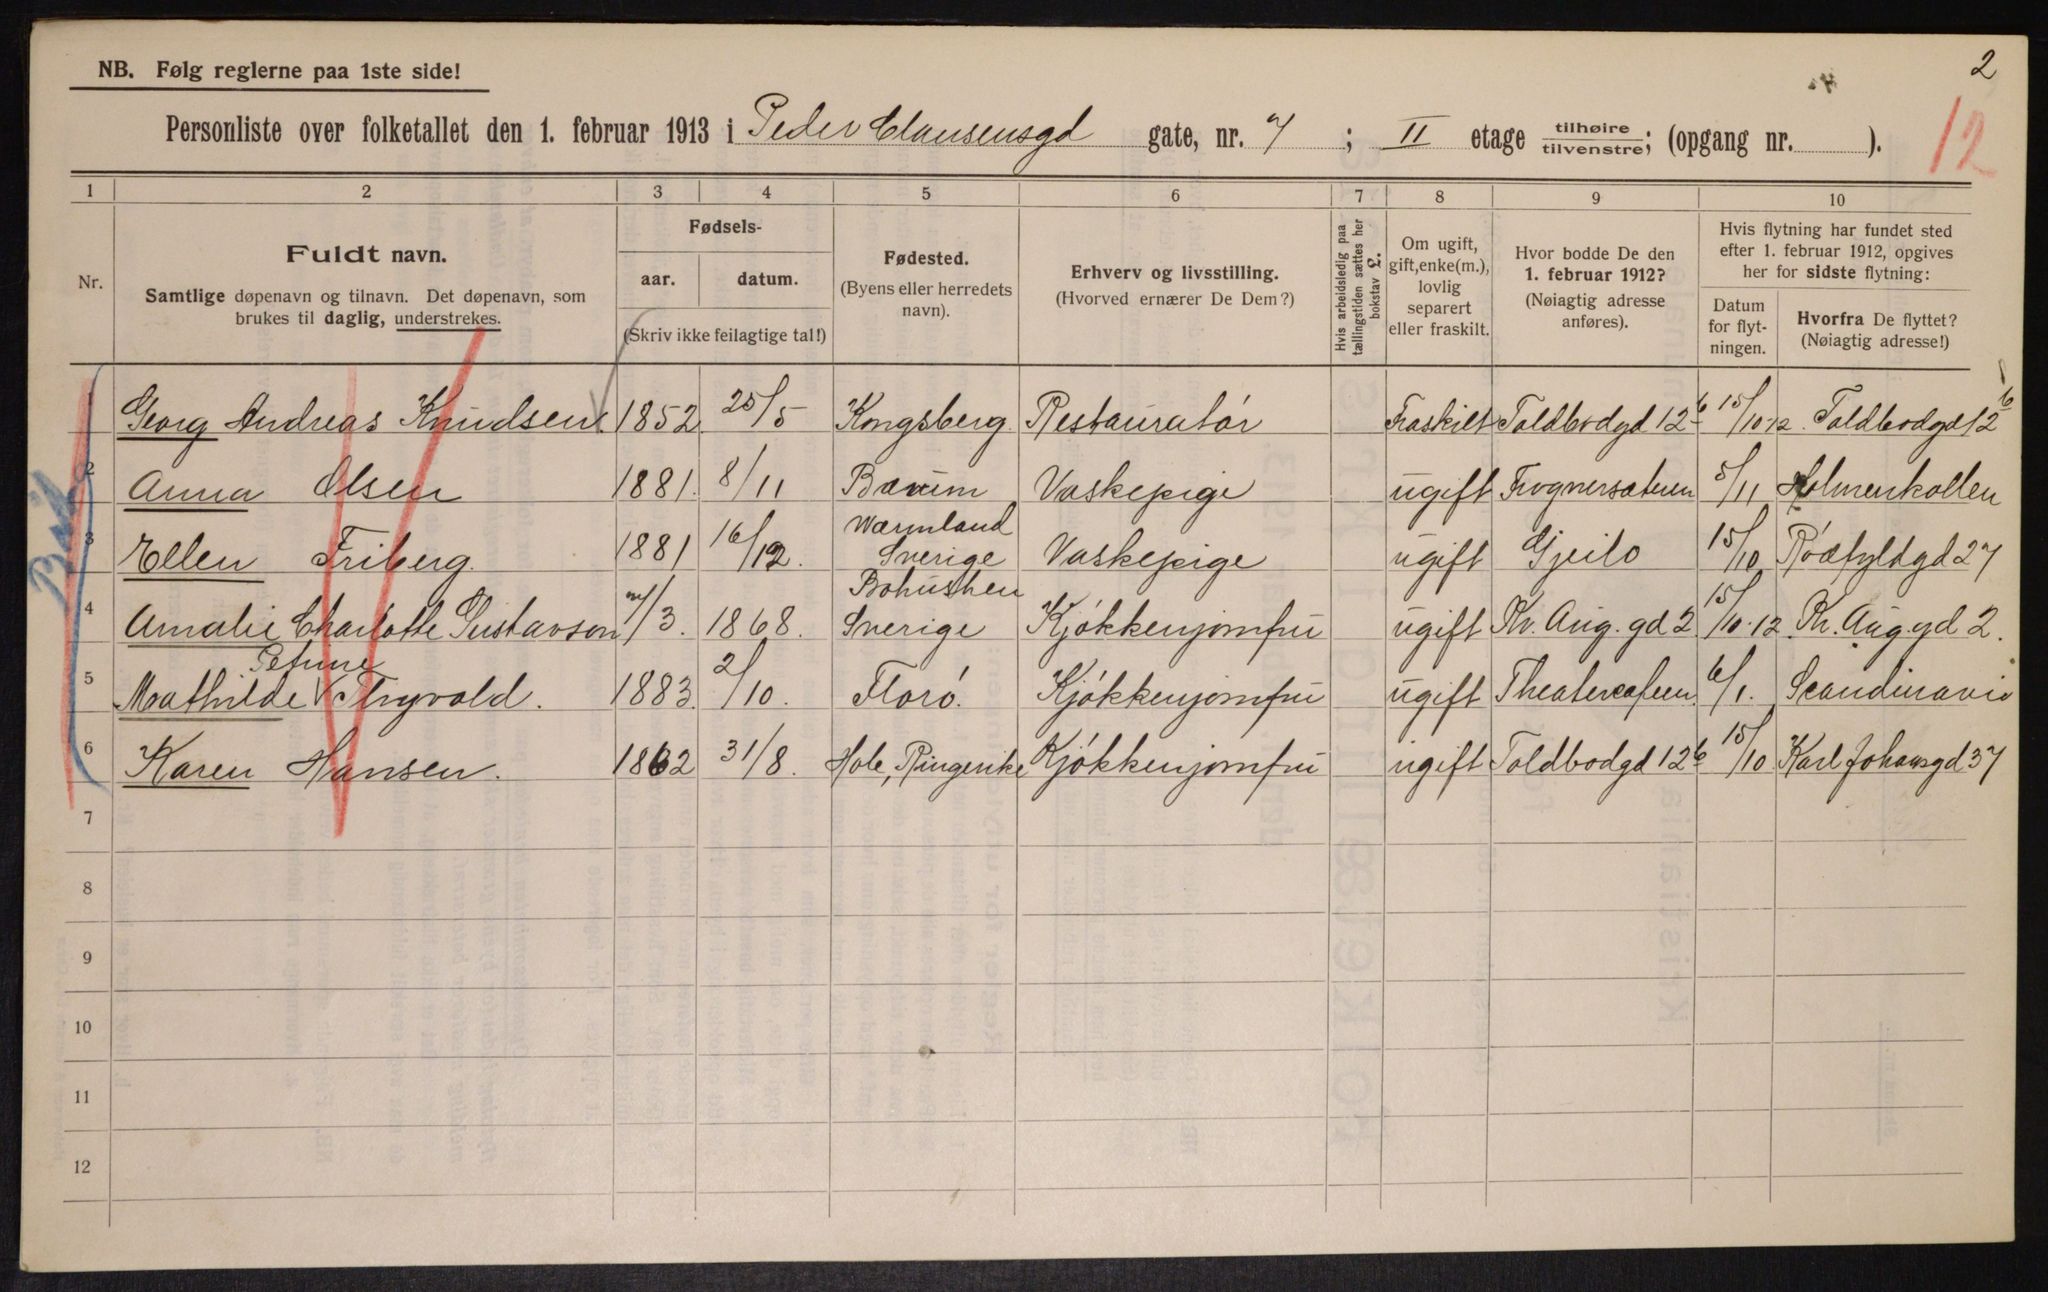 2
NB. Følg reglerne paa 1ste side!
12
Personliste over folketallet den 1. februar 1913 i Peder Clausensgd gate, nr. 7 ; II etage tilhøire tilvenstre; (opgang nr. ).
1 2 3 4 5 6 7 8 9 10
Nr.
Fuldt navn.
Samtlige døpenavn og tilnavn. Det døpenavn, som
brukes til daglig, understrekes.
Fødsels-
aar. datum.
(Skriv ikke feilagtige tal!)
Fødested.
(Byens eller herredets
navn).
Erhverv og livsstilling.
(Hvorved ernærer De Dem?)
Hvis arbeidsledig paa
tællingstiden sættes her
bokstav L.
Om ugift,
gift, enke(m.),
lovlig
separert
eller fraskilt.
Hvor bodde De den
1. februar 1912?
(Nøiagtig adresse
anføres).
Hvis flytning har fundet sted
efter 1. februar 1912, opgives
her for sidste flytning:
Datum
for flyt-
ningen.
Hvorfra De flyttet?
(Nøiagtig adresse!)
1 Georg Andreas Knudsen 1852 25/5 Kongsberg Restauratør Fraskilt Toldbodgd 12b 15/10-12. Toldbodgd 12b
2 Anna Olsen 1881. 8/11 Bærum Vaskepige ugift Frognersæteren 5/11 Holmenkollen
3 Ellen Friberg. 1881 16/12. Wærmland Sverige Vaskepige ugift Gjeilo 15/10
4 Amalie Charlotte Gustavson /3. 1868. Sverige Kjøkkenjomfru ugift Kr. Aug. gd 2 15/10-12 Kr. Aug. gd 2.
5 Mathilde Petrine Thyvold. 1883. 2/10. Florø. Kjøkkenjomfru ugift Theatercafeen. 6/1. Scandinavie
6 Karen Hansen. 1862 31/8. Hole, Ringerike Kjøkkenjomfru ugift Toldbodgd 12b 15/10 Karl Johansgd 37
7
8
9
10
11
12